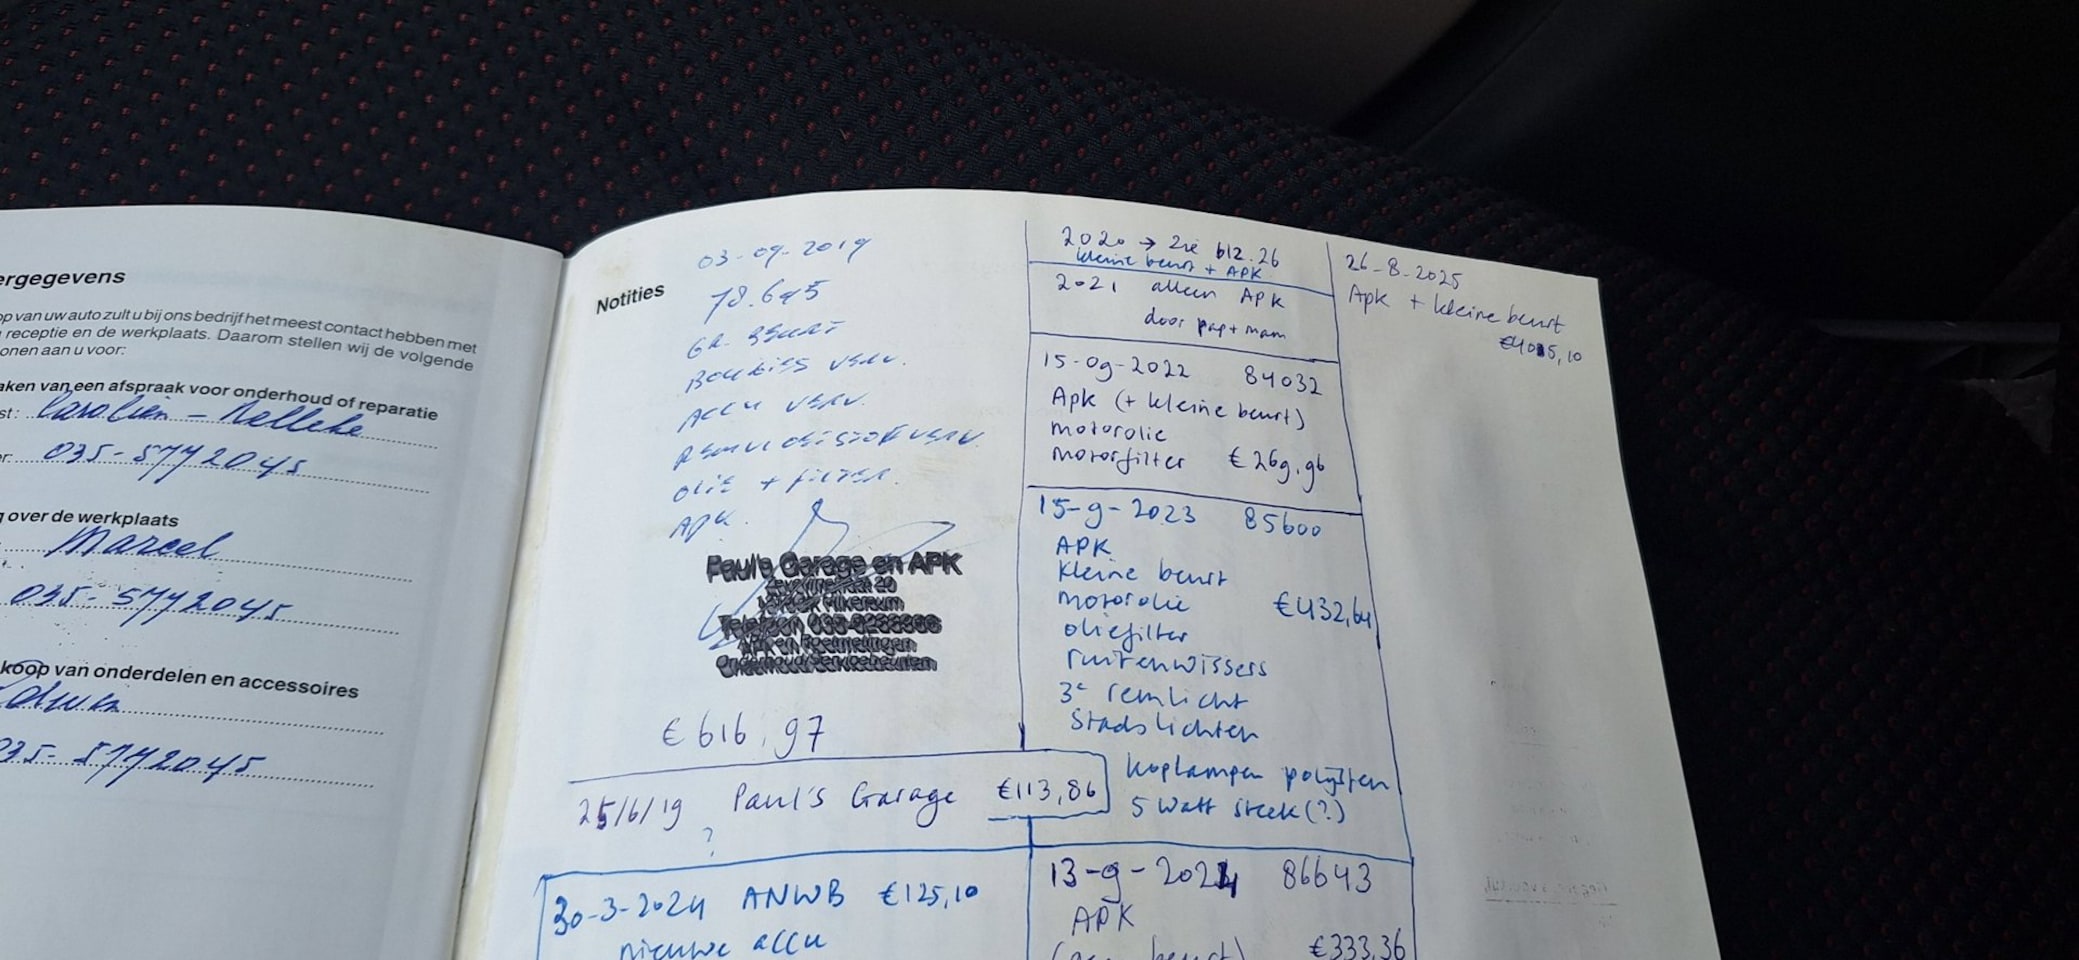 ergegevens
op van uw auto zult u bij ons bedrijf het meest contact hebben met
receptie en de werkplaats. Daarom stellen wij de volgende
onen aan u voor:
aken van een afspraak voor onderhoud of reparatie
st:
r: 035-5772045
g over de werkplaats
Marcel
035-5772045
koop van onderdelen en accessoires
035-5772045
Notities
03-09-2019
78.695
GR. BEURT
BOUGIES VERV.
ACCU VERV.
REMVLOEISTOF VERV.
OLIE + FILTER.
APK.
Paul's Garage en APK
Telefoon
APK en Roetmetingen
Onderhoud/Servicebeurten
€ 616,97
25/6/19 Paul's Garage €113,86
?
30-3-2024 ANWB €125,10
nieuwe accu
2020 → zie blz. 26
kleine beurt + APK
2021 alleen APK
door pap + mam
15-09-2022 84032
Apk (+ kleine beurt)
motorolie
motorfilter € 269,96
15-9-2023 85600
APK
kleine beurt
motorolie €432,64
oliefilter
ruitenwissers
3e remlicht
Stadslichten
koplampen polijsten
5 Watt steek (?)
13-9-2024 86643
APK
(geen beurt) €333,36
26-8-2025
Apk + kleine beurt
€405,10